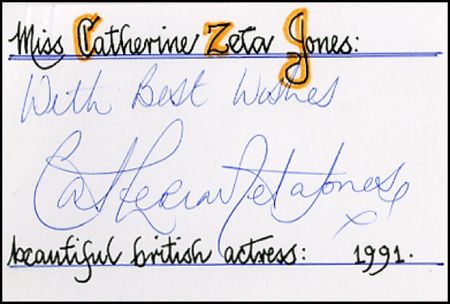 Miss Catherine Zeta Jones:
With Best Wishes
Catherine Zeta Jones x
x
beautiful british actress: 1991.